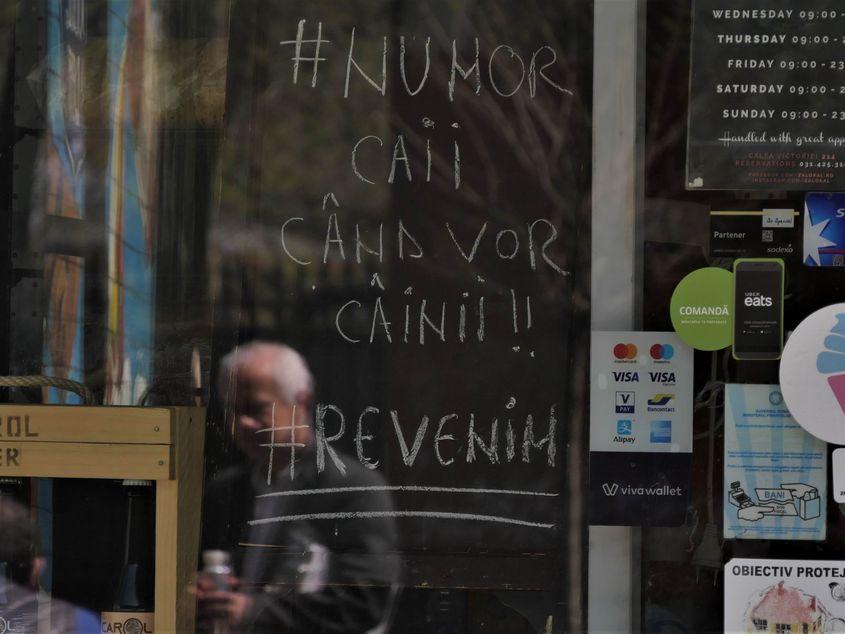 #NUMOR
CAII
CÂND VOR
CÂINII!!
#REVENIM
WEDNESDAY 09:00 -
THURSDAY 09:00 - 23
FRIDAY 09:00 - 23
SATURDAY 09:00 - 23
SUNDAY 09:00 - 23
Handled with great app
CALEA VICTORIEI 214
RESERVATIONS 031.425.31
FACEBOOK.COM/ZALOKAL.RO
INSTAGRAM.COM/ZALOKAL
Partener
sodexo
COMANDĂ
UBER
eats
mastercard
maestro
VISA VISA
V PAY
Bancontact
Alipay
vivawallet
BANI
BON FISCAL
OBIECTIV PROTEJ
ROL
ER
CAROL